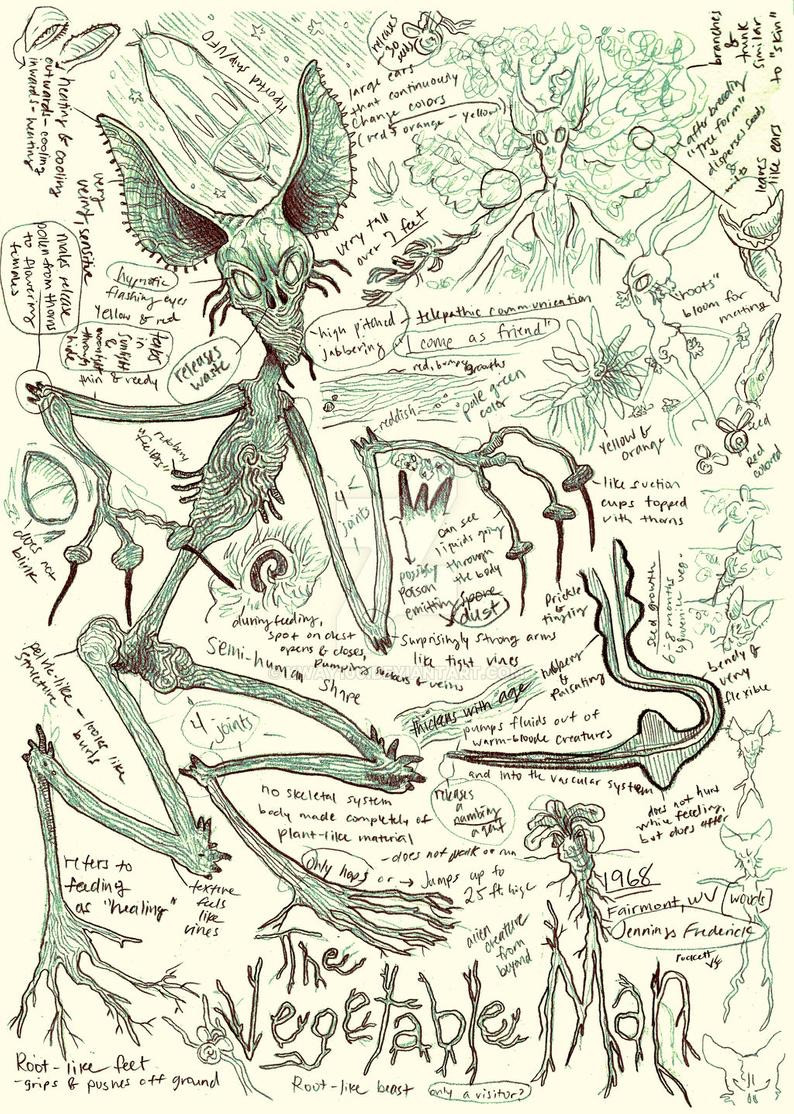 heating & cooling
outwards - cooling
inwards - heating
Reported ship/UFO
releases
30
seeds
large ears
that continuously
change colors
(red & orange - yellow)
branches
&
trunk
similar
to "skin"
after breeding
"tree form"
&
disperses seeds
leaves
like ears
very
sensitive
males release
pollen from thorns
to flowering
females
hypnotic
flashing eyes
Yellow & red
very tall
over 7 feet
in
sunlight
&
through
thin & reedy
releases
waste
high pitched
Jabbering
telepathic communication
"I come as friend"
"roots"
bloom for
mating
red, bumpy growths
reddish
pale green
color
yellow &
orange
seed
Red
colored
does not
blink
4
joints
can see
liquids going
through
the body
possibly
poison
emitting spore
dust
like suction
cups topped
with thorns
during feeding,
spot on chest
opens & closes
Pumping
Surprisingly strong arms
like tight vines
Semi-human
Shape
Prickle
&
tingling
rubbery
&
Pulsating
Seed growth
6-8 months
juvenile veg.
bendy &
very
flexible
pelvic-like
structure
looks like
burls
4 joints
thickens with age
pumps fluids out of
warm-bloode creatures
and into the vascular system
releases
a numbing
agent
does not hurt
while feeding,
but does after
no skeletal system
body made completely of
plant-like material
only hops
- does not walk or run
or → Jumps up to
25 ft high
refers to
feeding
as "healing"
texture
feels
like
vines
alien creature
from
beyond
1968
Fairmont, WV [woods]
Jennings Frederick
The
Vegetable Man
Root-like feet
- grips & pushes off ground
Root-like beast
only a visitor?